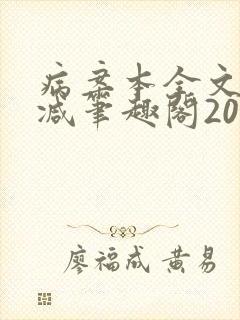 病案本全文
减笔趣阁20
廖福成 黄易